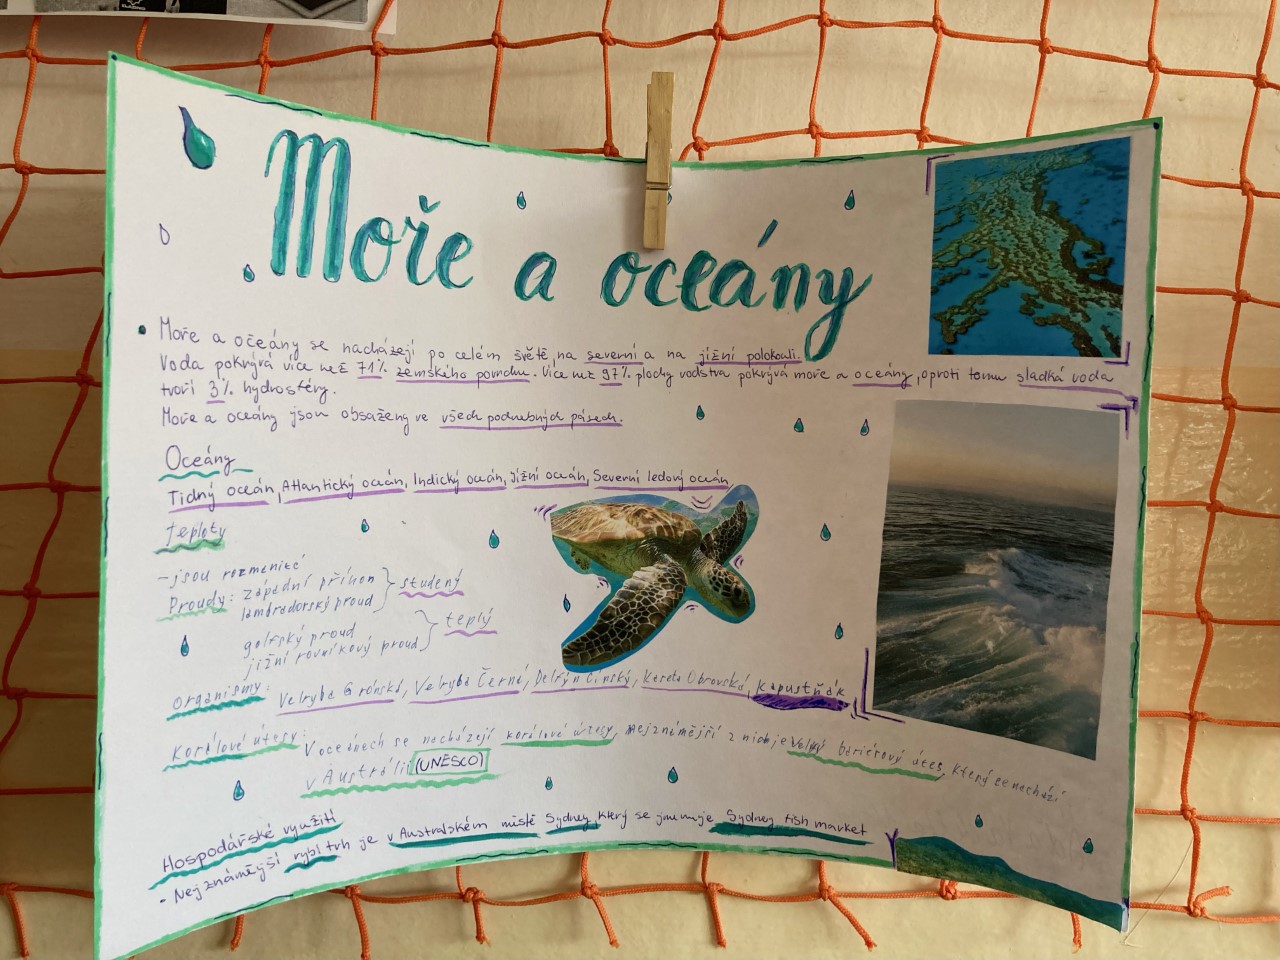 Moře a oceány
Moře a očeány se nacházejí po celém světě, na severní a na jižní polokouli.
Voda pokrývá více než 71% zemského povrchu. Více než 97% plochy vodstva pokrývá moře a oceány, oproti tomu sladká voda
tvoří 3% hydrosféry.
Moře a oceány jsou obsaženy ve všech podnebných pásech.
Oceány
Tichý oceán, Atlantický oceán, Indický oceán, Jižní oceán, Severní ledový oceán
teploty
-jsou rozmanité
Proudy: západní příhon
labradorský proud
studený
golfský proud
jižní rovníkový proud
teplý
organismy: Velryba Grónská, Velryba Černá, Delfýn Čínský, Kareta Obrovská, Kapustňák
Korálové útesy: V oceánech se nacházejí korálové útesy, nejznámější z nich je Velký bariérový útes, který se nachází
v Austrálii (UNESCO)
Hospodářské využití
- Nejznámější rybí trh je v Australském městě Sydney který se jmenuje Sydney fish market